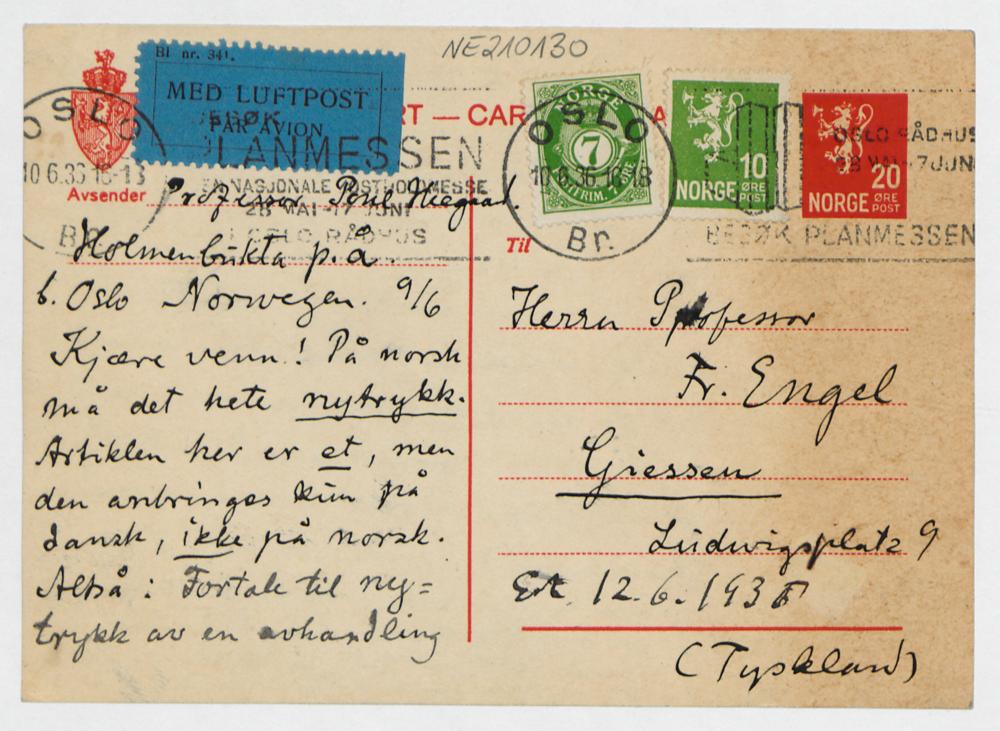 NE210130
Bl. nr. 341.
MED LUFTPOST
PAR AVION
RT — CAR A
OSLO
10.6.36 16-18
Br.
BESØK
PLANMESSEN
28 MAI - 7 JUNI
OSLO RÅDHUS
NORGE
7
OSLO
10.6.36 16-18
Br.
NORGE 10 ØRE POST
NORGE 20 ØRE POST
OSLO RÅDHUS
28 MAI - 7 JUNI
BESØK PLANMESSEN
Avsender Professor Poul Heegaard.
Holmenbukta p.å.
b. Oslo Norwegen. 9/6
Kjære venn! På norsk
må det hete nytrykk.
Artiklen her er et, men
den anbringes kun på
dansk, ikke på norsk.
Altså: Fortale til ny=
trykk av en avhandling
Til
Herrn Professor
Fr. Engel
Giessen
Ludwigsplatz 9
12.6.193
(Tyskland)